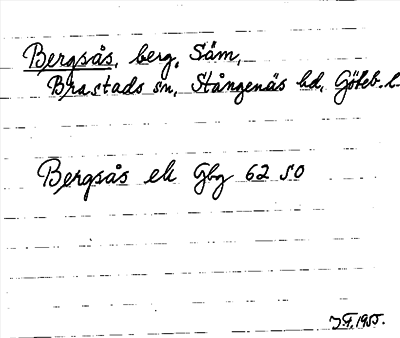 Bergsås, berg, Säm,
Brastads sn, Stångenäs hd, Göteb. l.
Bergsås ek Gbg 62 SO
J.F. 1955.